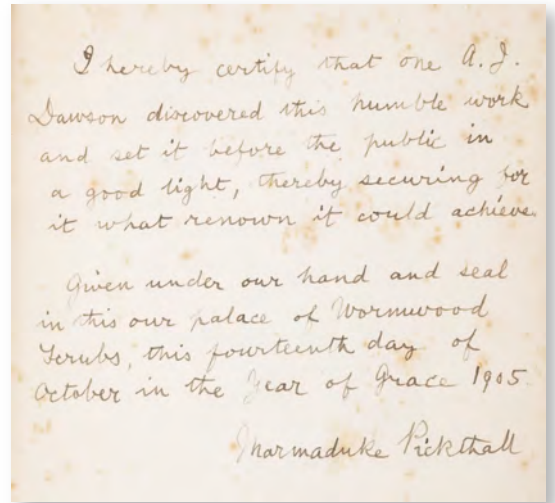 I hereby certify that one A. J.
Dawson discovered this humble work
and set it before the public in
a good light, thereby securing for
it what renown it could achieve.
Given under our hand and seal
in this our palace of Wormwood
Scrubs, this fourteenth day of
October in the Year of Grace 1905.
Marmaduke Pickthall